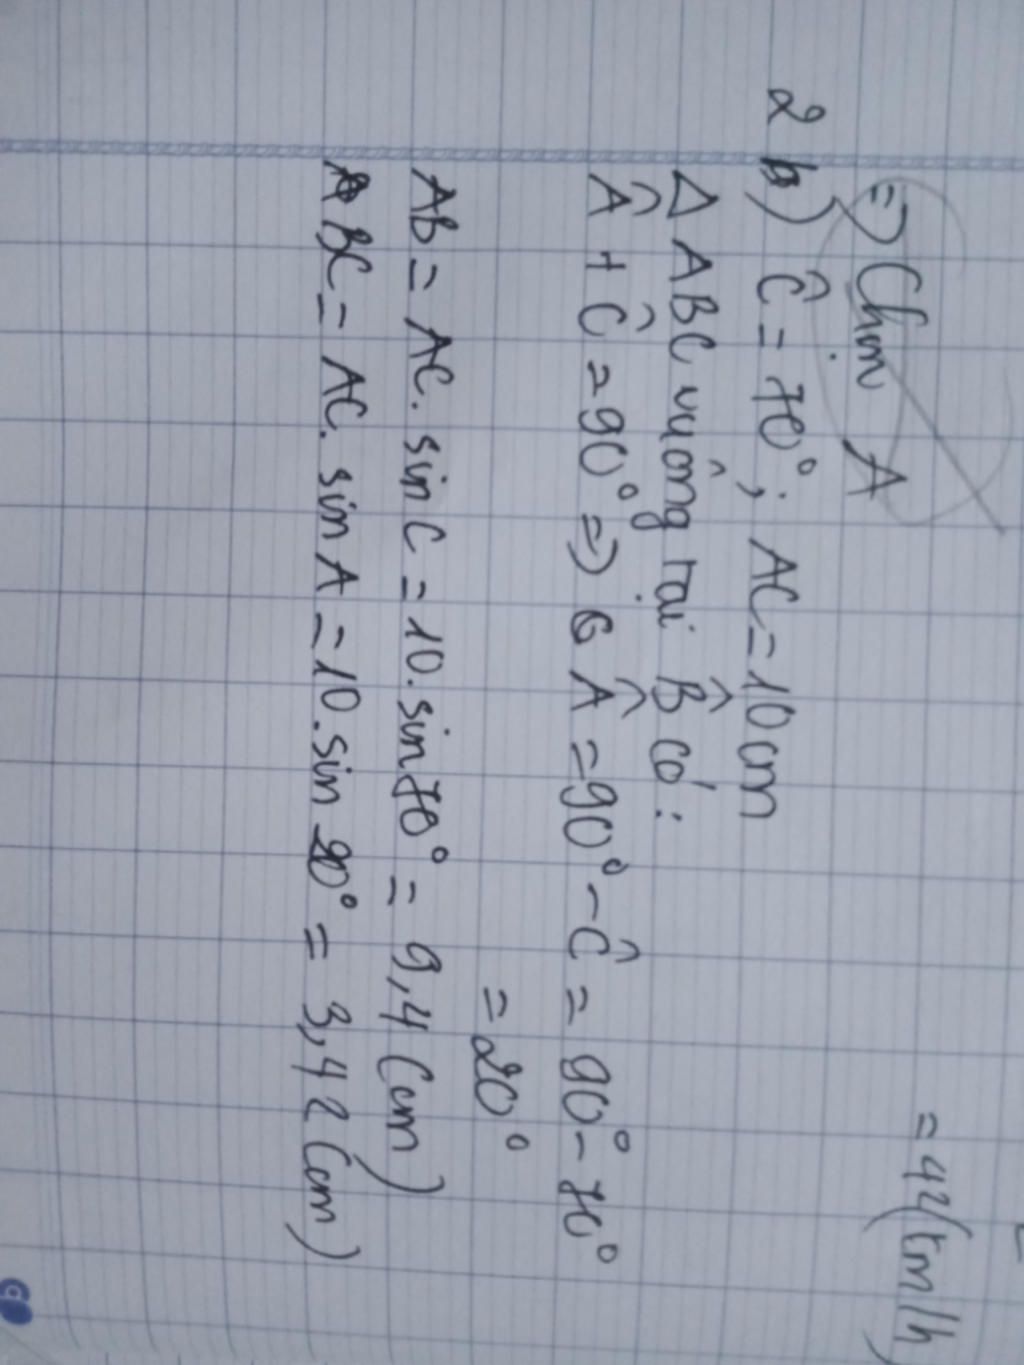 = 42 (km/h)
=) Chim A
2 b) Ĉ = 70°; AC = 10 cm
Δ ABC vuông tại B̂ có:
Â + Ĉ = 90° =) Â = 90° - Ĉ = 90° - 70°
= 20°
AB = AC. sin C = 10. sin 70° = 9,4 (cm)
BC = AC. sin A = 10. sin 20° = 3,42 (cm)